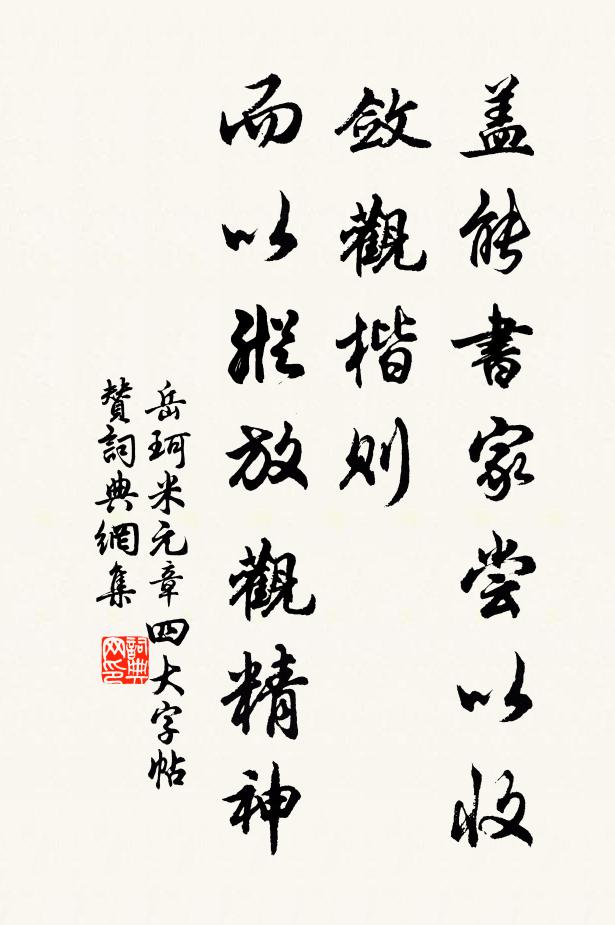 盖能書家嘗以收
斂觀楷则
而以縱放觀精神
岳珂米元章四大字帖
贊詞典網集
詞典
网印